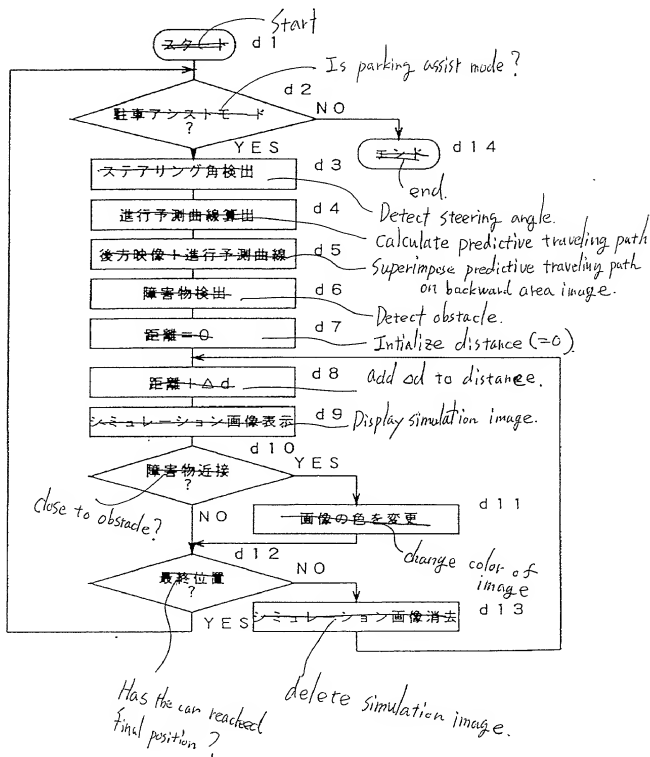 Start
スタート
d1
Is parking assist mode?
d2
駐車アシストモード
?
NO
YES
エンド
d14
end.
ステアリング角検出
d3
Detect steering angle.
進行予測曲線算出
d4
Calculate predictive traveling path
後方映像+進行予測曲線
d5
Superimpose predictive traveling path
on backward area image.
障害物検出
d6
Detect obstacle.
距離=0
d7
Intialize distance (=0)
距離+Δd
d8
add Δd to distance.
シミュレーション画像表示
d9
Display simulation image.
d10
障害物近接
?
YES
close to obstacle?
NO
画像の色を変更
d11
change color of
image
d12
最終位置
?
NO
YES
シミュレーション画像消去
d13
Has the car reached
final position?
delete simulation image.